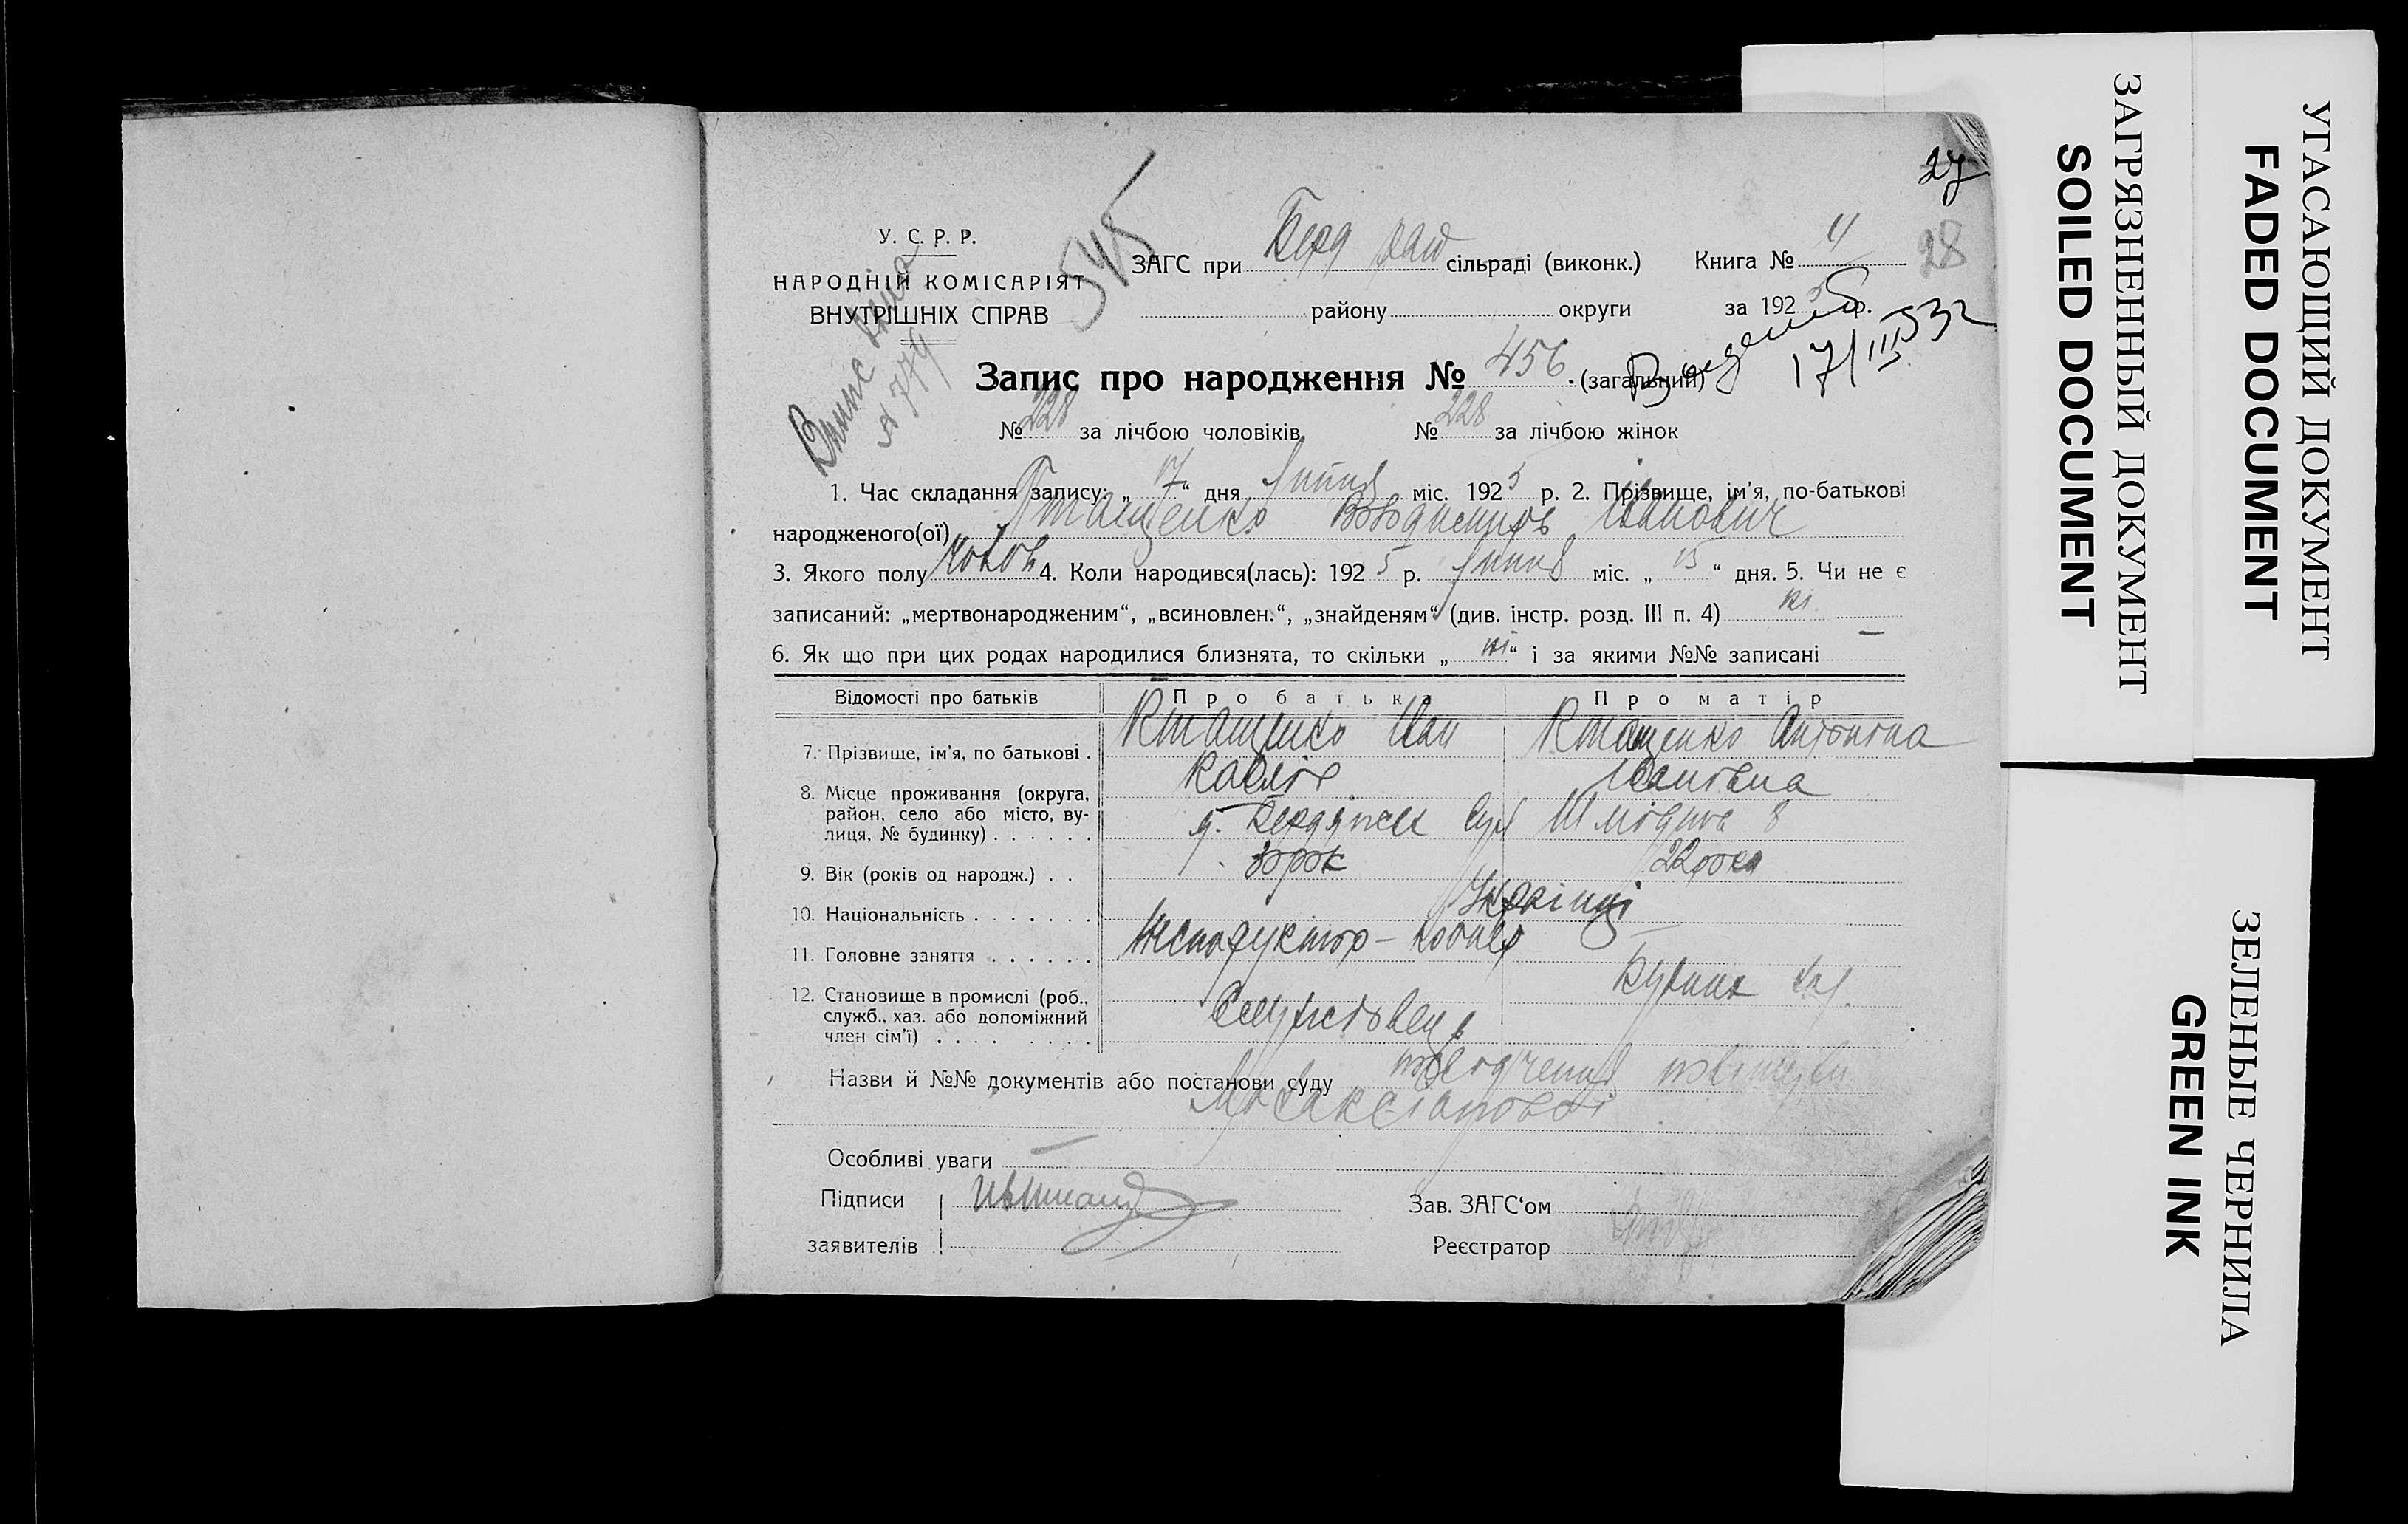 27
28
У. С. Р. Р.
НАРОДНІЙ КОМІСАРІЯТ
ВНУТРІШНІХ СПРАВ
545
ЗАГС при Берд рай сільраді (виконк.)
Книга № 11
району округи
за 1925 р.
17/III 532
Запис про народження № 456. (загальний)
№ 228 за лічбою чоловіків
№ 228 за лічбою жінок
1. Час складання запису: „17“ дня липня міс. 1925 р. 2. Прізвище, ім'я, по-батькові
народженого(ої) Пташенко Володимир Іванович
3. Якого полу чолов 4. Коли народився(лась): 1925 р. липня міс. „15“ дня. 5. Чи не є
записаний: „мертвонародженим“, „всиновлен.“, „знайденям“ (див. інстр. розд. III п. 4) ні
6. Як що при цих родах народилися близнята, то скільки „ні“ і за якими №№ записані —
Відомості про батьків
Про батька
Про матір
7. Прізвище, ім'я, по батькові .
Пташенко Іван
Пташенко Антонина
Ивановна
8. Місце проживання (округа, район, село або місто, ву-
лиця, № будинку) . . . . . .
Шмідта 8
9. Вік (років од народж.) . .
30 рок
22 рока
10. Національність . . . . . . .
Українці
11. Головне заняття . . . . . .
12. Становище в промислі (роб.,
служб., хаз. або допоміжний
член сім'ї) . . . . . . . .
Службовец
Назви й №№ документів або постанови суду посвідчення
Особливі уваги —
Підписи
заявителів
Зав. ЗАГС'ом
Реєстратор
ЗАГРЯЗНЕННЫЙ ДОКУМЕНТ
SOILED DOCUMENT
УГАСАЮЩИЙ ДОКУМЕНТ
FADED DOCUMENT
ЗЕЛЕНЫЕ ЧЕРНИЛА
GREEN INK